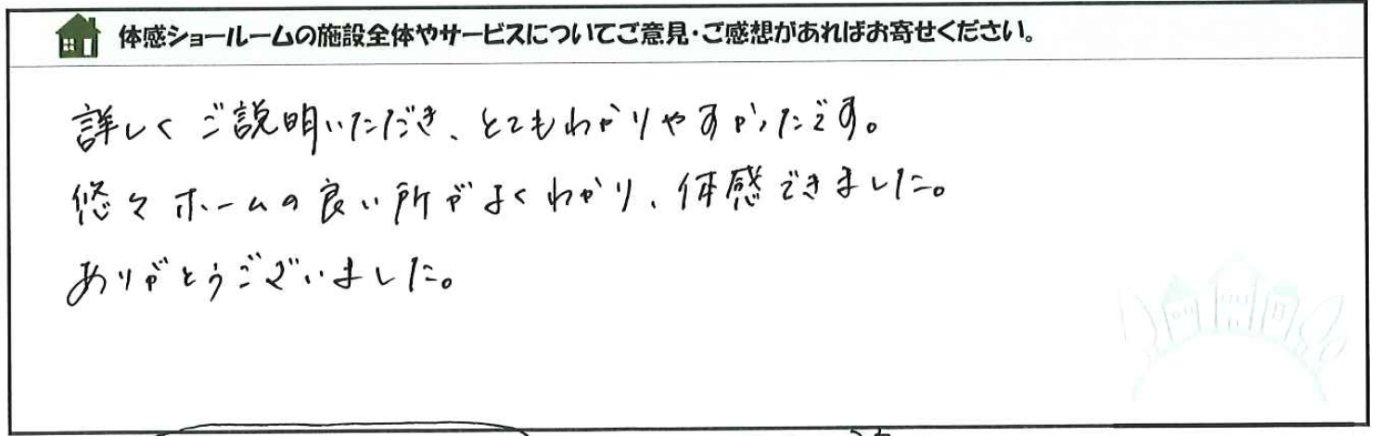 体感ショールームの施設全体やサービスについてご意見・ご感想があればお寄せください。
詳しくご説明いただき、とてもわかりやすかったです。
悠々ホームの良い所がよくわかり、体感できました。
ありがとうございました。